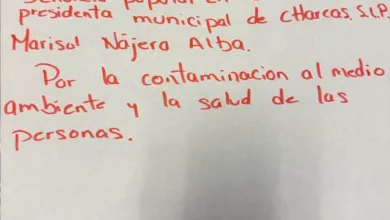 presidenta municipal de cHarcas, S.L.P.
Marisol Nájera Alba.
Por la contaminacion al medio
ambiente y la salud de las
personas.